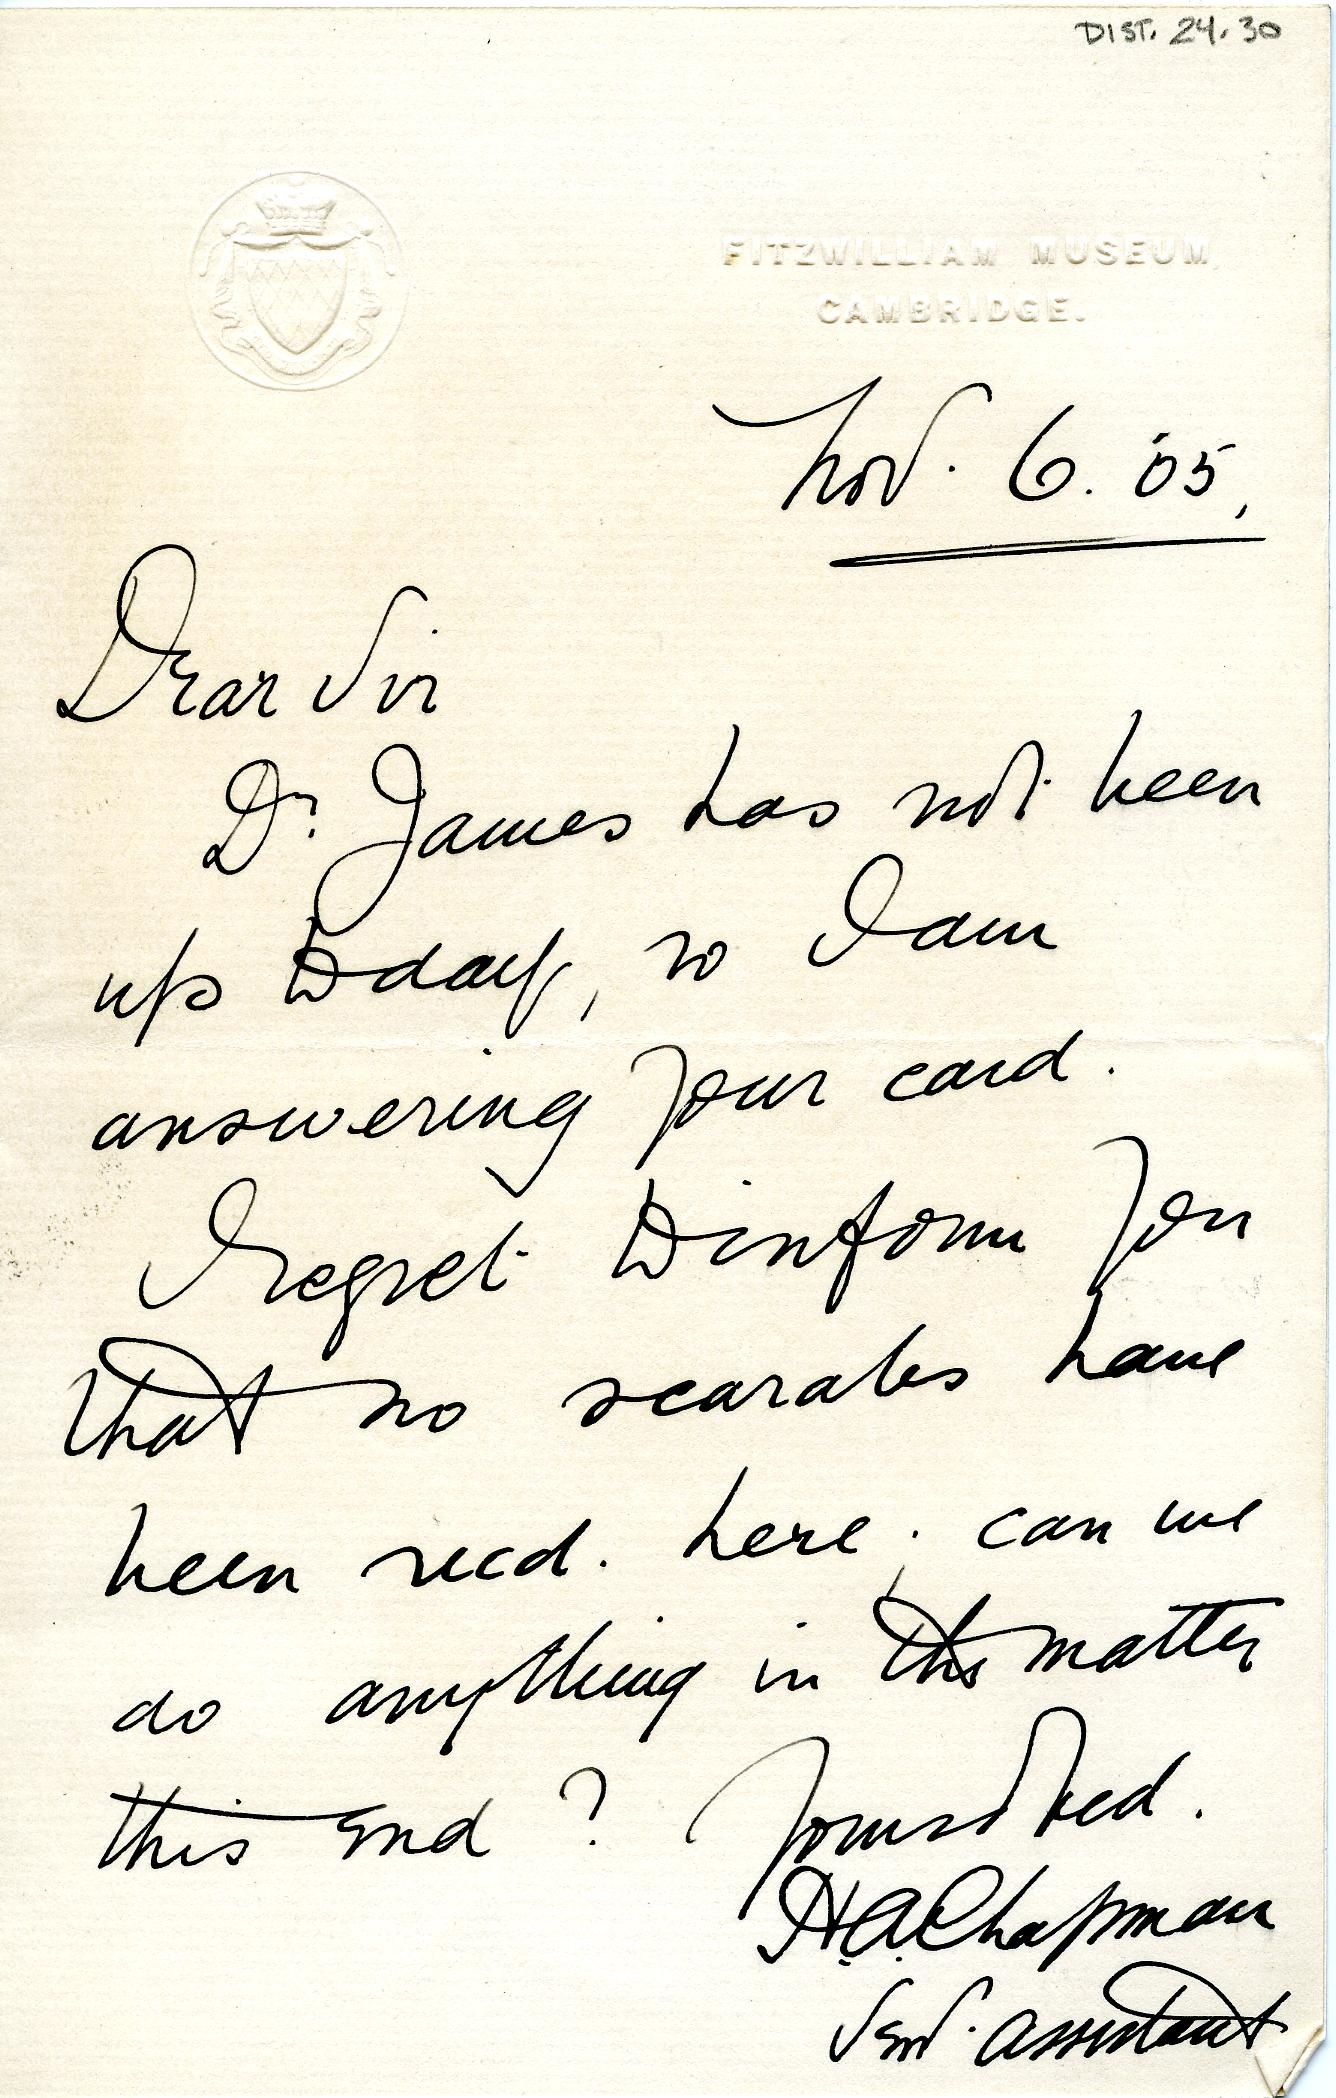 DIST. 24.30
FITZWILLIAM MUSEUM
CAMBRIDGE.
Nov. 6. '05.
Dear Sir
Dr. James has not been
up to day, so I am
answering your card.
I regret to inform you
that no scarabs have
been recd. here; can we
do anything in this matter
this end? Yours
H.A. Chapman
Assistant